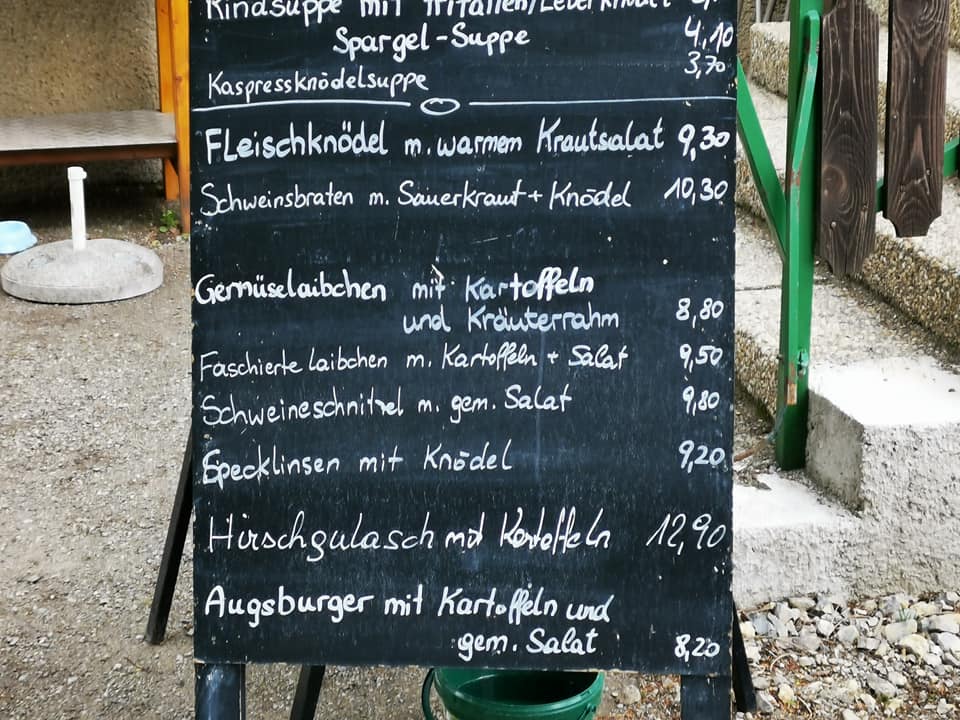 Rindsuppe mit Frittaten/Leberknödel
Spargel-Suppe 4,10
Kaspressknödelsuppe 3,70
Fleischknödel m. warmem Krautsalat 9,30
Schweinsbraten m. Sauerkraut + Knödel 10,30
Gemüselaibchen mit Kartoffeln
und Kräuterrahm 8,80
Faschierte laibchen m. Kartoffeln + Salat 9,50
Schweineschnitzel m. gem. Salat 9,80
Specklinsen mit Knödel 9,20
Hirschgulasch mit Kartoffeln 12,90
Augsburger mit Kartoffeln und
gem. Salat 8,20